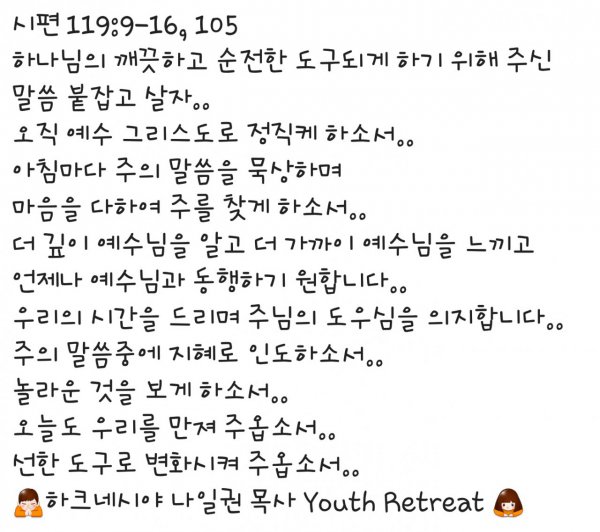 시편 119:9-16, 105
하나님의 깨끗하고 순전한 도구되게 하기 위해 주신
말씀 붙잡고 살자..
오직 예수 그리스도로 정직케 하소서..
아침마다 주의 말씀을 묵상하며
마음을 다하여 주를 찾게 하소서..
더 깊이 예수님을 알고 더 가까이 예수님을 느끼고
언제나 예수님과 동행하기 원합니다..
우리의 시간을 드리며 주님의 도우심을 의지합니다..
주의 말씀중에 지혜로 인도하소서..
놀라운 것을 보게 하소서..
오늘도 우리를 만져 주옵소서..
선한 도구로 변화시켜 주옵소서..
🙏하크네시야 나일권 목사 Youth Retreat 🙏